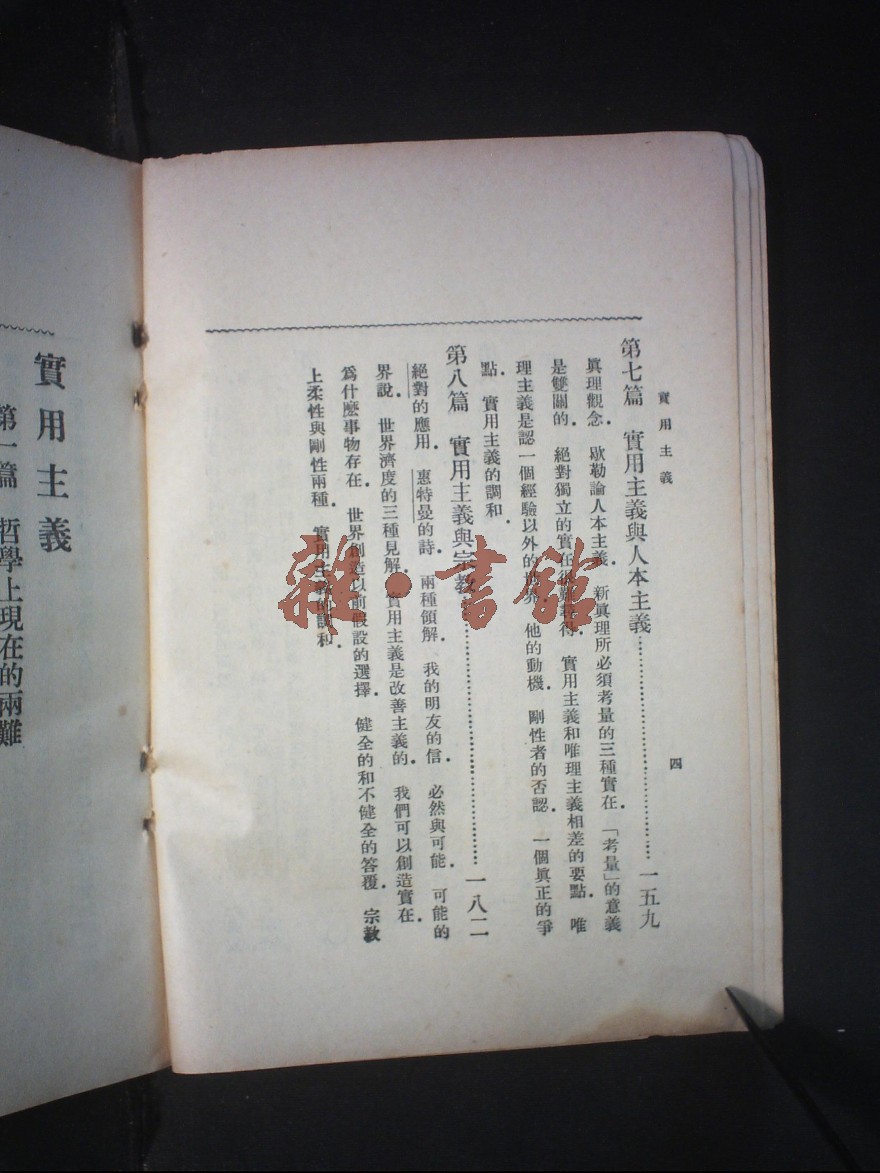 實用主義
四
第七篇 實用主義與人本主義 一五九
眞理觀念．歇勒論人本主義．新眞理所必須考量的三種實在．「考量」的意義
是雙關的．絕對獨立的實在 難 得．實用主義和唯理主義相差的要點．唯
理主義是認一個經驗以外的 界．他的動機．剛性者的否認．一個眞正的爭
點．實用主義的調和．
第八篇 實用主義與宗教 一八二
絕對的應用．惠特曼的詩．兩種領解．我的朋友的信．必然與可能．可能的
界說．世界濟度的三種見解．實用主義是改善主義的．我們可以創造實在．
爲什麽事物存在．世界創造以前假設的選擇．健全的和不健全的答覆．宗教
上柔性與剛性兩種．實用主義的調和．
實用主義
第一篇 哲學上現在的兩難
雜·書館